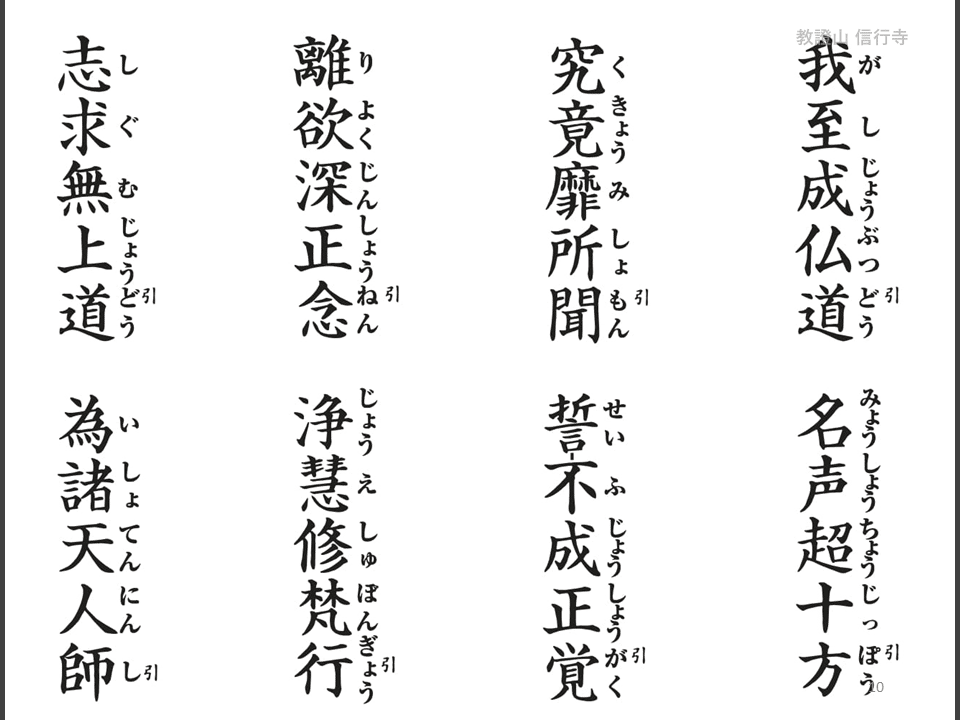 教證山 信行寺
我至成仏道
がしじょうぶつどう引
名声超十方
みょうしょうちょうじっぽう引
究竟靡所聞
くきょうみしょもん引
誓不成正覚
せいふじょうしょうがく引
離欲深正念
りよくじんしょうねん引
浄慧修梵行
じょうえしゅぼんぎょう引
志求無上道
しぐむじょうどう引
為諸天人師
いしょてんにんし引
10